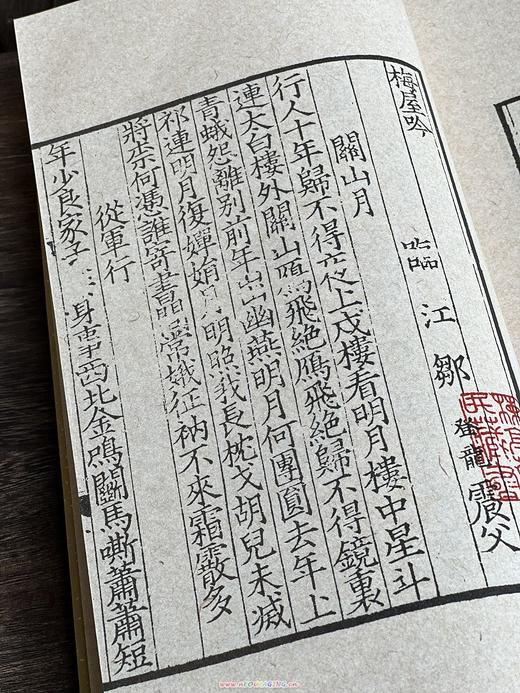 梅屋吟
臨江鄒登龍震父
關山月
行人十年歸不得夜上戍樓看明月樓中星斗
連大白樓外關山鴈飛絕鴈飛絕歸不得鏡裏
青蛾怨離別前年出幽燕明月何團圓去年上
祁連明月復嬋娟月明照我長枕戈胡兒未滅
將柰何馮誰寄書常娥征衲不來霜霰多
從軍行
年少良家子身事西北金鳴鬭馬嘶蕭蕭短
www.neoimaging.cn